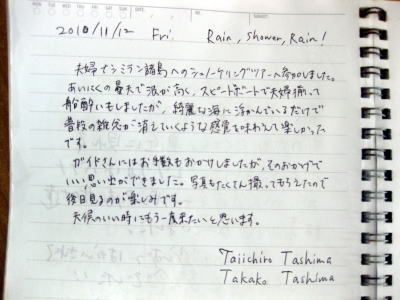 2010/11/12 Fri. Rain, Shower, Rain!
夫婦でシミラン諸島へのシュノーケリングツアーへ参加しました。
あいにくの曇天で波が高く、スピードボートで夫婦揃って
船酔いもしましたが、綺麗な海に浮かんでいるだけで
普段の雑念が消えていくような感覚を味わえて楽しかった
です。
ガイドさんにはお手数もおかけしましたが、そのおかげで
いい思い出ができました。写真もたくさん撮ってもらえたので
後日見るのが楽しみです。
天候のいい時にもう一度来たいと思います。
Taiichiro Tashima
Takako Tashima